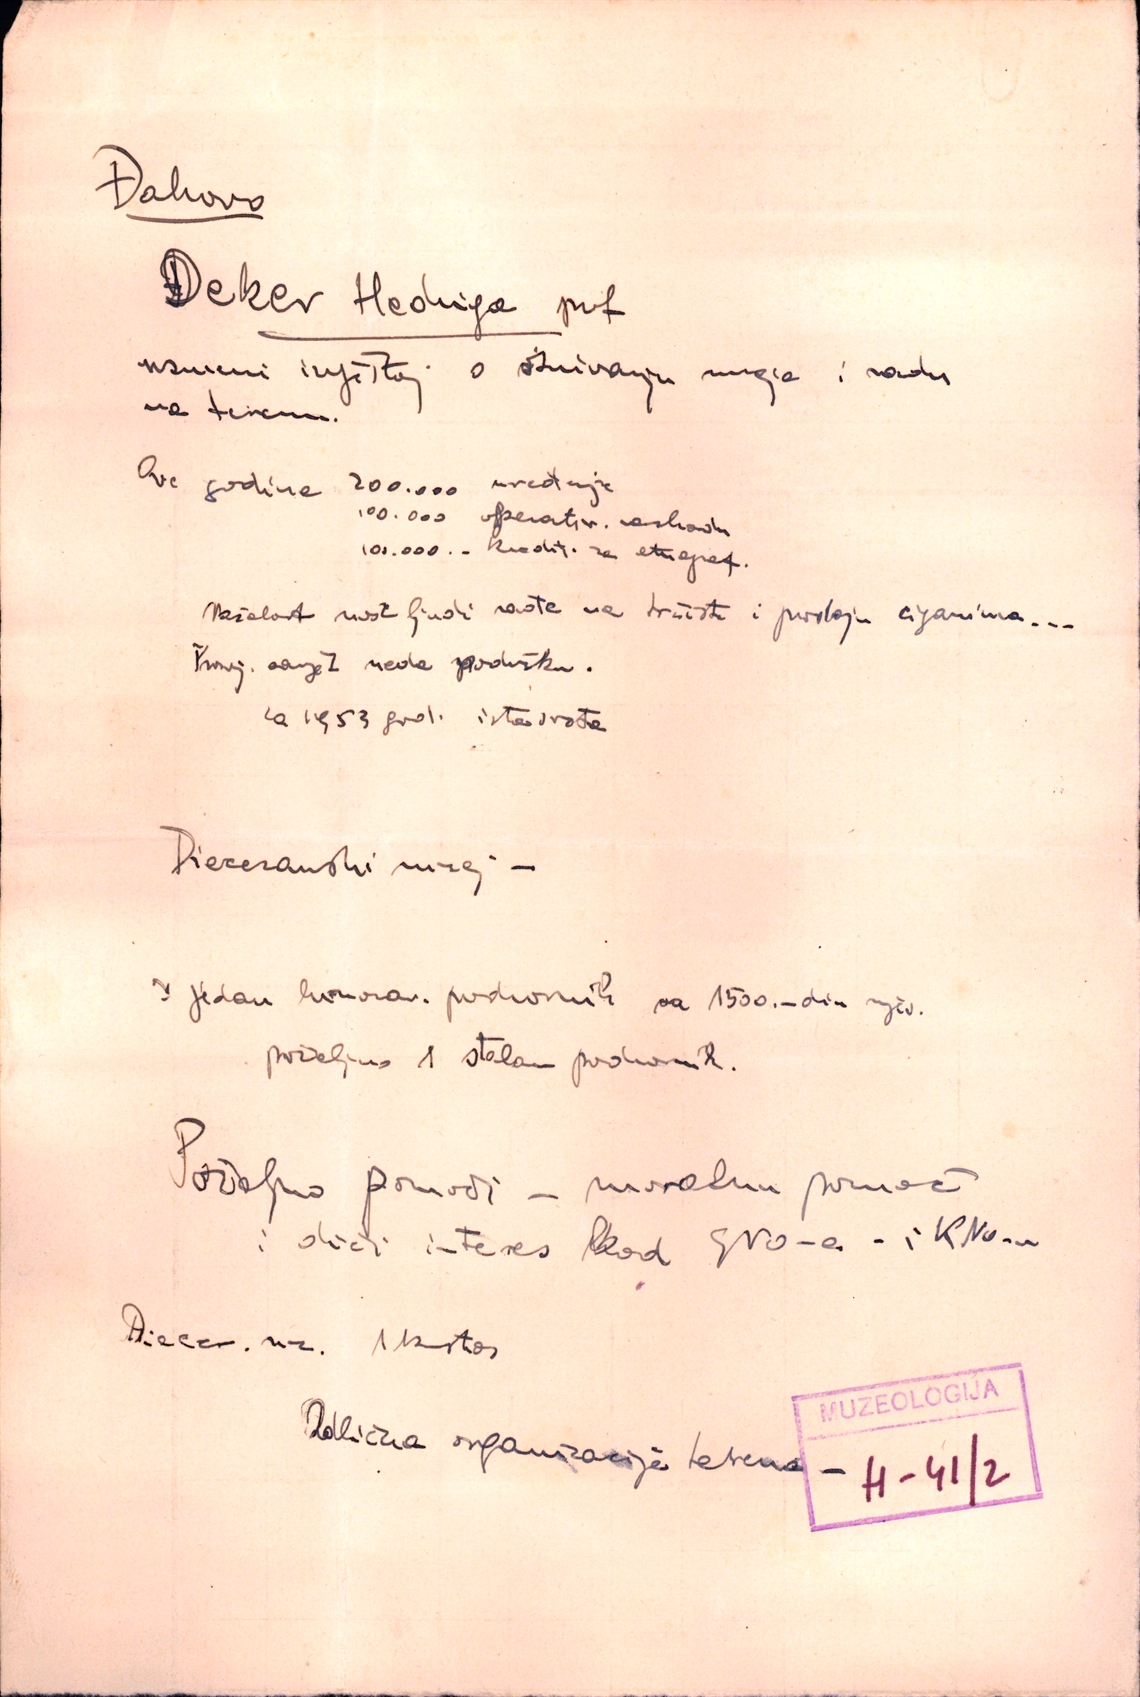 Đakovo
Deker Hedviga prof
usmeni izvještaj o osnivanju muzeja i radu
na terenu.
Ove godine 200.000 uređenje
100.000 operativ. rashodi
100.000.- kredit. za etnograf.
Nažalost nose ljudi na tržište i prodaju ciganima...
savjet neda podršku.
za 1953 god. ista svota
Diecezanski muzej –
I jedan honorar. podvornik sa 1500.- din mjes.
poželjno 1 stalan podvornik.
Poželjno pomoći – moralnu pomoć
i dići interes kod GNO-a - i KNO-a
Diecez. muz. 1 kustos
Odlična organizacija terena –
MUZEOLOGIJA
H-41/2